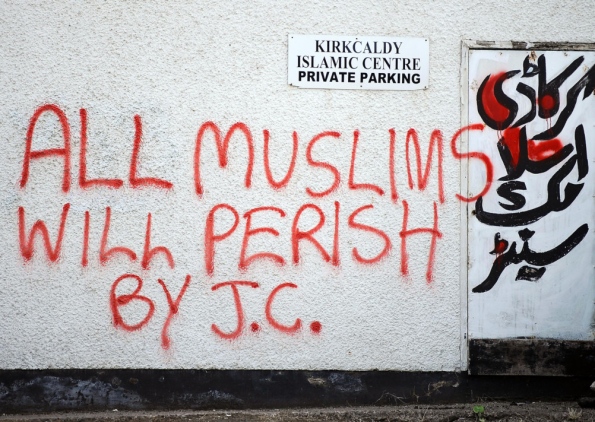 KIRKCALDY
ISLAMIC CENTRE
PRIVATE PARKING
ALL MUSLIMS
WILL PERISH
BY J.C.
کرکاڈی
اسلامک
سنٹر